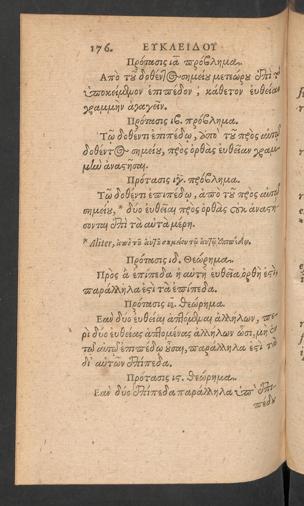 176. ΕΥΚΛΕΙΔΟΥ
Πρότασις ια πρόβλημα.
Ἀπὸ τοῦ δοθέντος σημείου μετεώρου ἐπὶ τὸ
ὑποκείμενον ἐπίπεδον, κάθετον εὐθεῖαν
γραμμὴν ἀγαγεῖν.
Πρότασις ιβ. πρόβλημα.
Τῷ δοθέντι ἐπιπέδῳ, ἀπὸ τοῦ πρὸς αὐτῷ
δοθέντος σημείου, πρὸς ὀρθὰς εὐθεῖαν γραμ-
μὴν ἀναστῆσαι.
Πρότασις ιγ. πρόβλημα.
Τῷ δοθέντι ἐπιπέδῳ, ἀπὸ τοῦ πρὸς αὐτῷ
σημείου,* δύο εὐθεῖαι πρὸς ὀρθὰς οὐκ ἀναστή-
σονται ἐπὶ τὰ αὐτὰ μέρη.
* Aliter, ἀπὸ τοῦ αὐτοῦ σημείου τῷ αὐτῷ ἐπιπέδῳ.
Πρότασις ιδ. Θεώρημα.
Πρὸς ἃ ἐπίπεδα ἡ αὐτὴ εὐθεῖα ὀρθή ἐστι,
παράλληλα ἐστὶ τὰ ἐπίπεδα.
Πρότασις ιε. Θεώρημα.
Ἐὰν δύο εὐθεῖαι ἁπτόμεναι ἀλλήλων, πα-
ρὰ δύο εὐθείας ἁπτομένας ἀλλήλων ὦσι, μὴ ἐν
τῷ αὐτῷ ἐπιπέδῳ οὖσαι, παράλληλα ἐστὶ τὰ
δι' αὐτῶν ἐπίπεδα.
Πρότασις ις. Θεώρημα.
Ἐὰν δύο ἐπίπεδα παράλληλα ὑπὸ ἐπι-
πέδου